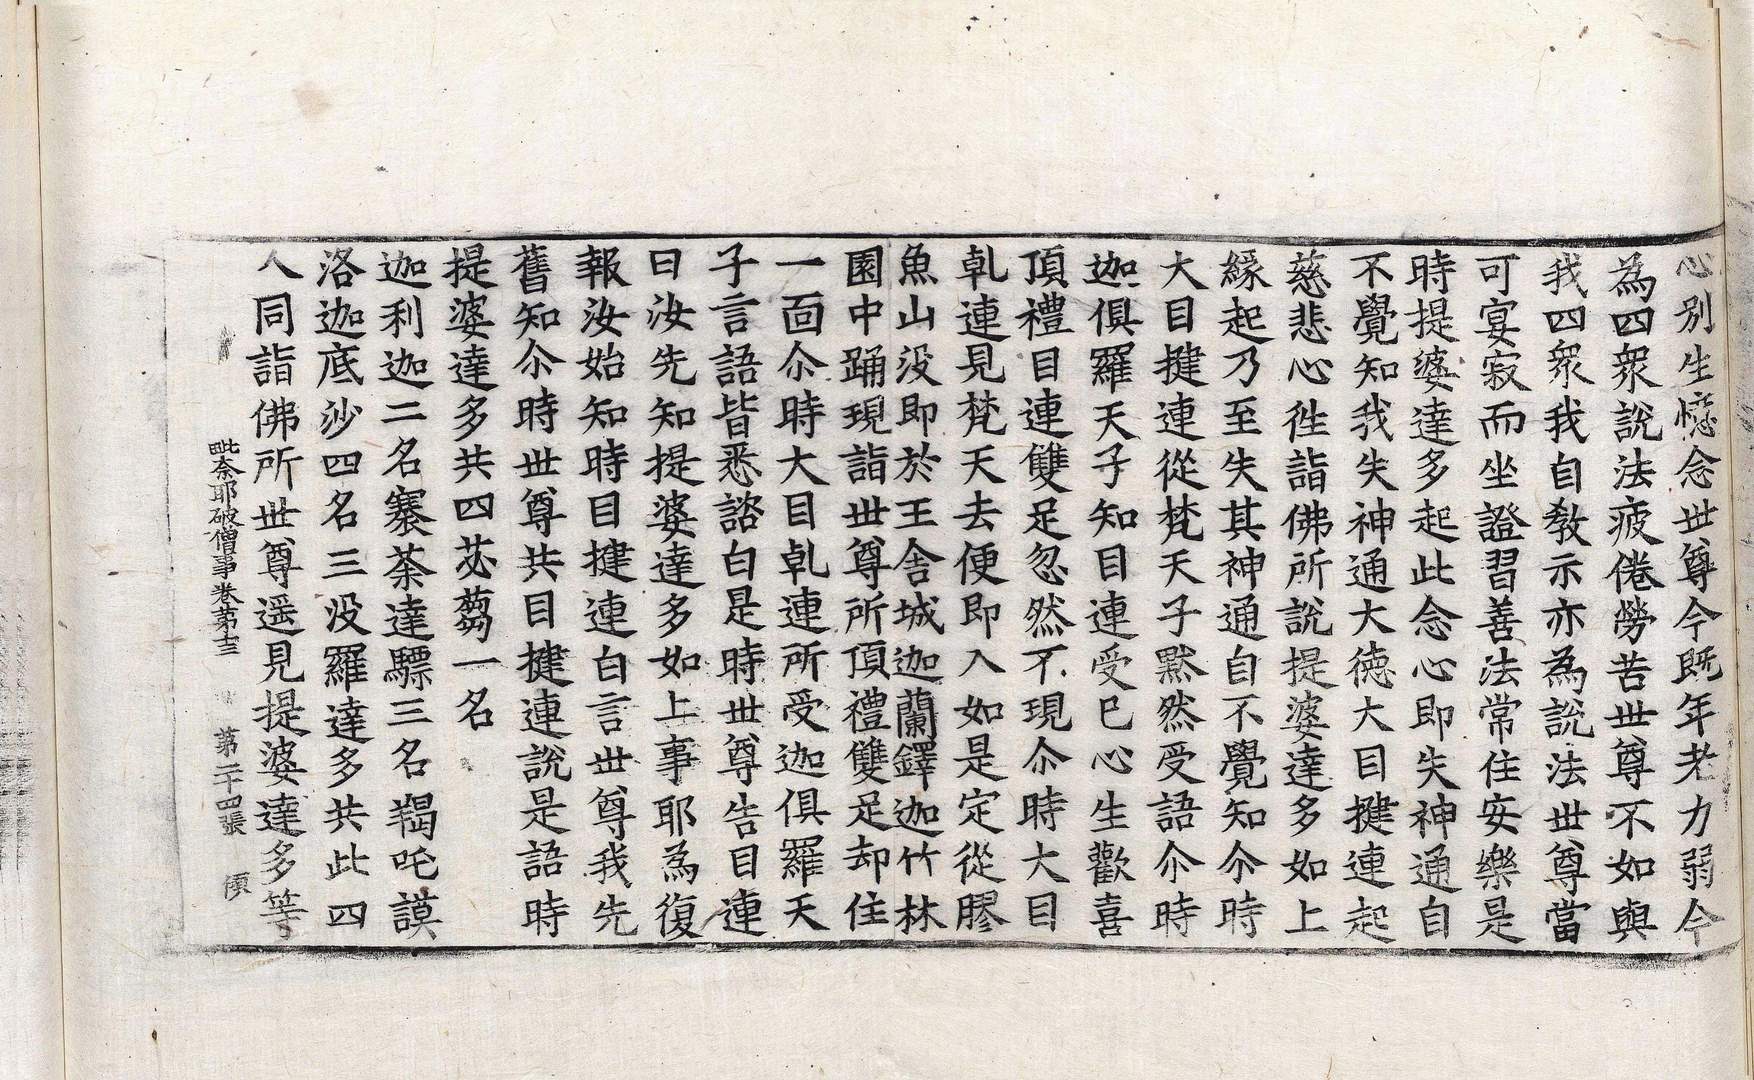 心別生憶念世尊今既年老力弱今
為四衆說法疲倦勞苦世尊不如與
我四衆我自教示亦為說法世尊當
可宴寂而坐證習善法常住安樂是
時提婆達多起此念心即失神通自
不覺知我失神通大德大目揵連起
慈悲心徃詣佛所說提婆達多如上
緣起乃至失其神通自不覺知尒時
大目揵連從梵天子黙然受語尒時
迦俱羅天子知目連受已心生歡喜
頂禮目連雙足忽然不現尒時大目
乹連見梵天去便即入如是定從膠
魚山没即於王舍城迦蘭鐸迦竹林
園中踊現詣世尊所頂禮雙足却住
一面尒時大目乹連所受迦俱羅天
子言語皆悉諮白是時世尊告目連
曰汝先知提婆達多如上事耶為復
報汝始知時目揵連白言世尊我先
舊知尒時世尊共目揵連說是語時
提婆達多共四苾蒭一名
迦利迦二名褰荼達驃三名羯吒謨
洛迦底沙四名三没羅達多共此四
人同詣佛所世尊遥見提婆達多等
毗奈耶破僧事卷第十三 第二十四張